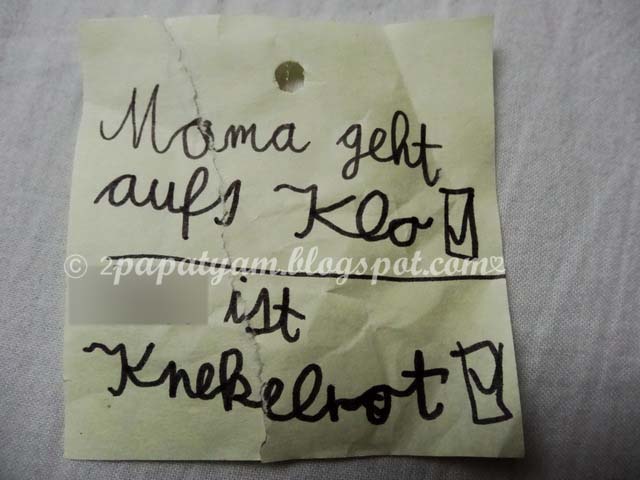 Mama geht
aufs Klo
© 2papatyam.blogspot.com
ist
Knekelrot